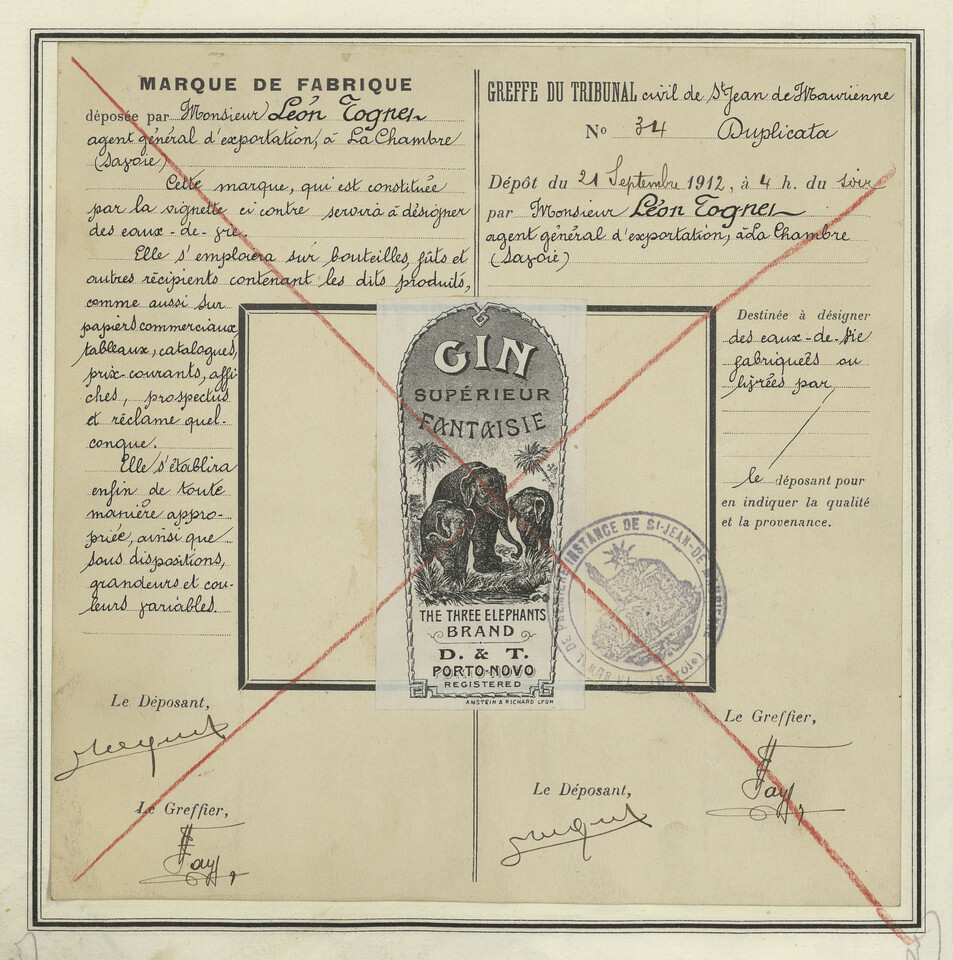 MARQUE DE FABRIQUE
déposée par Monsieur Léon Tognet
agent général d'exportation, à La Chambre
(Savoie)
Cette marque, qui est constituée
par la vignette ci contre servira à désigner
des eaux-de-vie.
Elle s'emploiera sur bouteilles, fûts et
autres récipients contenant les dits produits,
comme aussi sur
papiers commerciaux,
tableaux, catalogues,
prix-courants, affi
ches, prospectus
et réclame quel-
conque.
Elle s'établira
enfin de toute
manière appro-
priée, ainsi que
sous dispositions,
grandeurs et cou-
leurs variables.
Le Déposant,
Le Greffier,
Fay
GREFFE DU TRIBUNAL civil de St Jean de Maurienne
No 34 Duplicata
Dépôt du 21 Septembre 1912, à 4 h. du soir
par Monsieur Léon Tognet
agent général d'exportation, à La Chambre
(Savoie)
Destinée à désigner
des eaux-de-vie
fabriquées ou
livrées par
le déposant pour
en indiquer la qualité
et la provenance.
GIN
SUPÉRIEUR
FANTAISIE
THE THREE ELEPHANTS
BRAND
D. & T.
PORTO-NOVO
REGISTERED
AMSTEIN & RICHARD LYON
DE PREMIÈRE INSTANCE DE ST-JEAN-DE MAURIENNE
(Savoie)
Le Greffier,
Fay
Le Déposant,